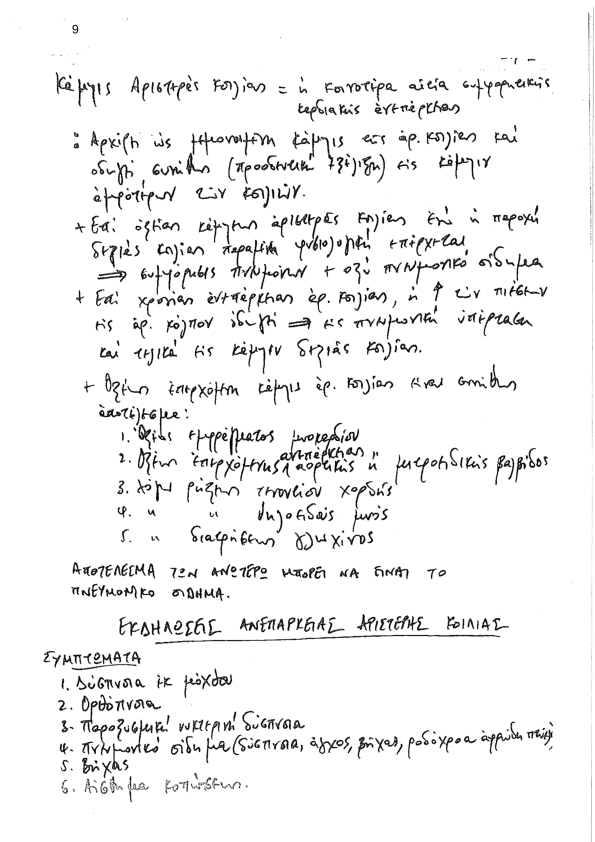 9
Κάμψις Αριστερᾶς Κοιλίας = ἡ κοινοτέρα αἰτία συμφορητικῆς
καρδιακῆς ἀνεπάρκειας
: Αρχίζει ὡς μεμονωμένη κάμψις τῆς ἀρ. κοιλίας καὶ
ὁδηγεῖ συνήθως (προοδευτική ἐξέλιξη) εἰς κάμψιν
ἀμφοτέρων τῶν κοιλιῶν.
+ Επί ὀξείας κάμψεως ἀριστερᾶς κοιλίας ἐνῶ ἡ παροχή
δεξιᾶς κοιλίας παραμένει φυσιολογική ἐπέρχεται
⟹ συμφόρησις πνευμόνων + οξύ πνευμονικό οἴδημα
+ Επί χρονίας ἀνεπάρκειας ἀρ. κοιλίας, ἡ ↑ τῶν πιέσεων
εἰς ἀρ. κόλπον ὁδηγεῖ ⟹ εἰς πνευμονική ὑπέρταση
και τελικά εἰς κάμψιν δεξιᾶς κοιλίας.
+ Οξέως ἐπερχομένη κάμψις ἀρ. κοιλίας εἶναι συνήθως
ἀποτέλεσμα:
1. Ὀξέος ἐμφράγματος μυοκαρδίου
2. Οξέως ἐπερχομένης ἀνεπάρκειας ἀορτικῆς ἤ μιτροειδικῆς βαλβίδος
3. Λόγω ρήξεως τενοντίου χορδῆς
4. " " θηλοειδοῦς μυός
5. " διατρήσεως γλωχίνος
ΑΠΟΤΕΛΕΣΜΑ ΤΩΝ ΑΝΩΤΕΡΩ ΜΠΟΡΕΙ ΝΑ ΕΙΝΑΙ ΤΟ
ΠΝΕΥΜΟΝΙΚΟ ΟΙΔΗΜΑ.
ΕΚΔΗΛΩΣΕΙΣ ΑΝΕΠΑΡΚΕΙΑΣ ΑΡΙΣΤΕΡΗΣ ΚΟΙΛΙΑΣ
ΣΥΜΠΤΩΜΑΤΑ
1. Δύσπνοια ἐκ μόχθου
2. Ορθόπνοια
3. Παροξυσμική νυκτερινή δύσπνοια
4. Πνευμονικό οἴδημα (δύσπνοια, ἄγχος, βήχας, ροδόχροα ἀφρώδη πτύελα)
5. Βήχας
6. Αἴσθημα κοπώσεως.